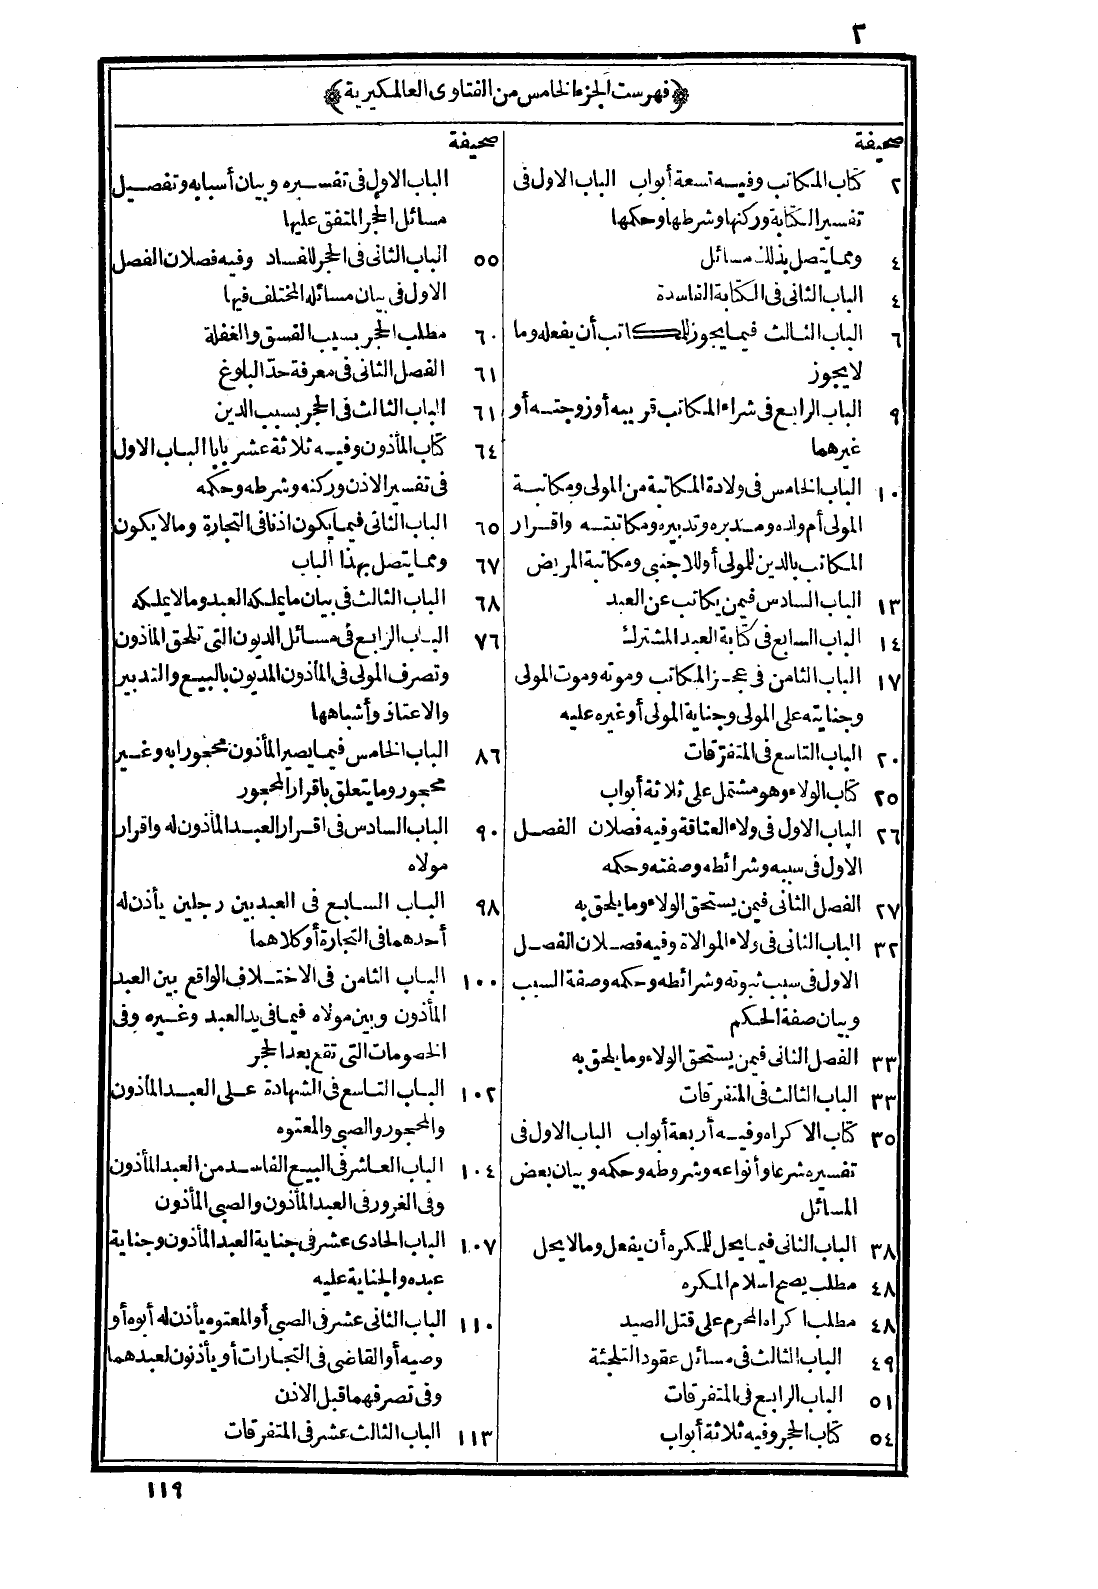 ٣
﴿فهرست الجزء الخامس من الفتاوى العالمكيرية﴾
صحيفة
٢ كتاب المكاتب وفيه تسعة أبواب الباب الاول فى
تفسير الكتابة وركنها وشرطها وحكمها
٤ ومما يتصل بذلك مسائل
٤ الباب الثانى فى الكتابة الفاسدة
٦ الباب الثالث فيما يجوز للمكاتب أن يفعله وما
لا يجوز
٩ الباب الرابع فى شراء المكاتب قريبه أو زوجته أو
غيرهما
١٠ الباب الخامس فى ولادة المكاتبة من المولى ومكاتبة
المولى أم ولده ومدبره وتدبيره ومكاتبته واقرار
المكاتب بالدين للمولى أو للاجنبى ومكاتبة المريض
١٣ الباب السادس فيمن يكاتب عن العبد
١٤ الباب السابع فى كتابة العبد المشترك
١٧ الباب الثامن فى عجز المكاتب وموته وموت المولى
وجنايته على المولى وجناية المولى أو غيره عليه
٢٠ الباب التاسع فى المتفرقات
٢٥ كتاب الولاء وهو مشتمل على ثلاثة أبواب
٢٦ الباب الاول فى ولاء العتاقة وفيه فصلان الفصل
الاول فى سببه وشرائطه وصفته وحكمه
٢٧ الفصل الثانى فيمن يستحق الولاء وما يلحق به
٣٢ الباب الثانى فى ولاء الموالاة وفيه فصلان الفصل
الاول فى سبب ثبوته وشرائطه وحكمه وصفة السبب
وبيان صفة الحكم
٣٣ الفصل الثانى فيمن يستحق الولاء وما يلحق به
٣٣ الباب الثالث فى المتفرقات
٣٥ كتاب الاكراه وفيه أربعة أبواب الباب الاول فى
تفسيره شرعا وأنواعه وشروطه وحكمه وبيان بعض
المسائل
٣٨ الباب الثانى فيما يحل للمكره أن يفعل وما لا يحل
٤٨ مطلب يصح اسلام المكره
٤٨ مطلب اكراه المحرم على قتل الصيد
٤٩ الباب الثالث فى مسائل عقود التلجئة
٥١ الباب الرابع فى المتفرقات
٥٤ كتاب الحجر وفيه ثلاثة أبواب
صحيفة
الباب الاول فى تفسيره وبيان أسبابه وتفصيل
مسائل الحجر المتفق عليها
٥٥ الباب الثانى فى الحجر للفساد وفيه فصلان الفصل
الاول فى بيان مسائله المختلف فيها
٦٠ مطلب الحجر بسبب الفسق والغفلة
٦١ الفصل الثانى فى معرفة حدّ البلوغ
٦١ الباب الثالث فى الحجر بسبب الدين
٦٤ كتاب المأذون وفيه ثلاثة عشر بابا الباب الاول
فى تفسير الاذن وركنه وشرطه وحكمه
٦٥ الباب الثانى فيما يكون اذنا فى التجارة وما لا يكون
٦٧ ومما يتصل بهذا الباب
٦٨ الباب الثالث فى بيان ما يملكه العبد وما لا يملكه
٧٦ الباب الرابع فى مسائل الديون التى تلحق المأذون
وتصرف المولى فى المأذون المديون بالبيع والتدبير
والاعتاق وأشباهها
٨٦ الباب الخامس فيما يصير المأذون محجورا به وغير
محجور وما يتعلق باقرار المحجور
٩٠ الباب السادس فى اقرار العبد المأذون له واقرار
مولاه
٩٨ الباب السابع فى العبد بين رجلين يأذن له
أحدهما فى التجارة أو كلاهما
١٠٠ الباب الثامن فى الاختلاف الواقع بين العبد
المأذون وبين مولاه فيما فى يد العبد وغيره وفى
الخصومات التى تقع بعد الحجر
١٠٢ الباب التاسع فى الشهادة على العبد المأذون
والمحجور والصبى والمعتوه
١٠٤ الباب العاشر فى البيع الفاسد من العبد المأذون
وفى الغرور فى العبد المأذون والصبى المأذون
١٠٧ الباب الحادى عشر فى جناية العبد المأذون وجناية
عبده والجناية عليه
١١٠ الباب الثانى عشر فى الصبى أو المعتوه يأذن له أبوه أو
وصيه أو القاضى فى التجارات أو يأذنون لعبدهما
وفى تصرفهما قبل الاذن
١١٣ الباب الثالث عشر فى المتفرقات
١١٩